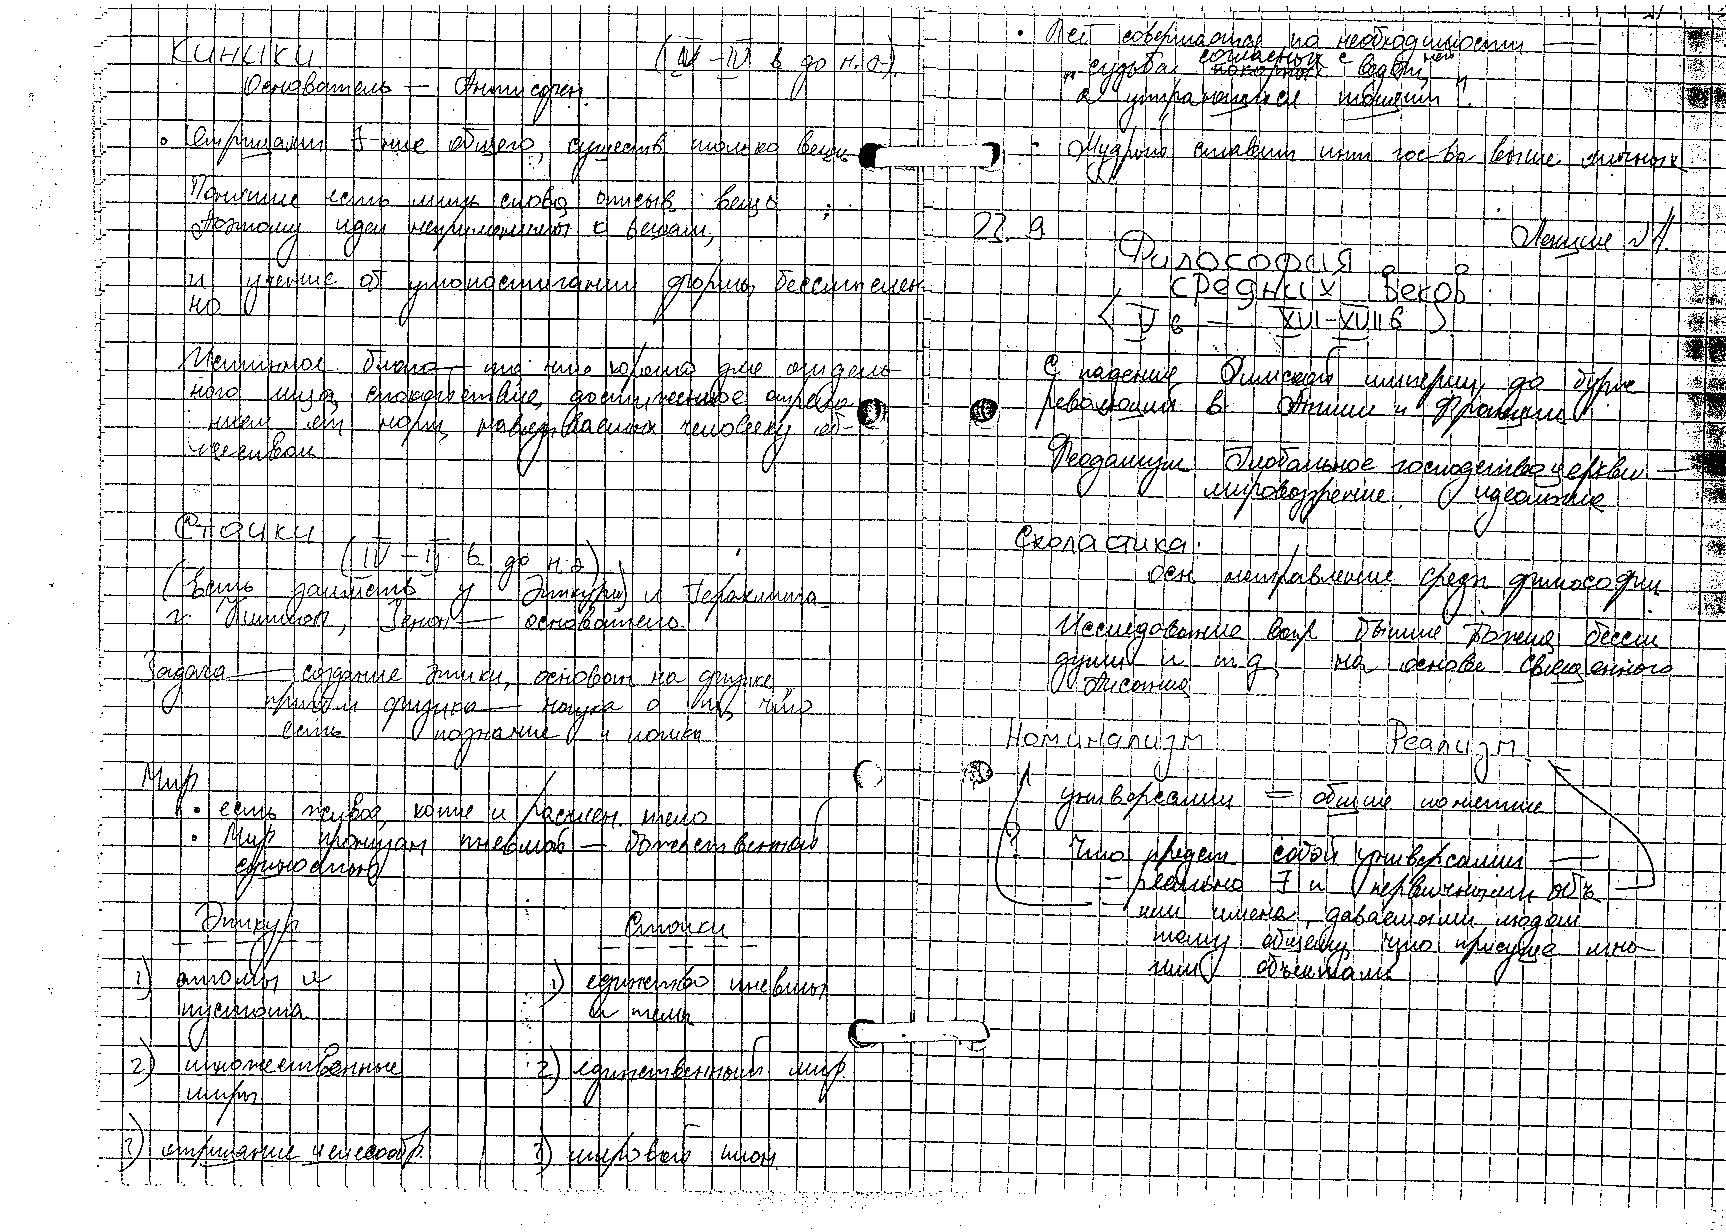 Киники (IV – IV в до н.э.)
Основатель — Антисфен
• отрицали ∃-ние общего, существ только вещи
Понятие есть лишь слово, описыв. вещь ;
Поэтому идеи неприменимы к вещам,
и учение об умопостигании формы бессмыслен-
но
Истинное благо — то что хорошо для отдель-
ного лица, спокойствие, достигнутое
норм, навязываемых человеку об-
ществом
Стоики
(IV – II в до н.э)
(Есть заимств у Эпикура) и Гераклита
г. Китион, Зенон — основатель
Задача — создание этики, основан на физике,
причем физика — наука о том, что
есть познание и логика
Мир
• есть живое, и расчлен. тело
• Мир пронизан пневмой — божественной
сущностью
Эпикур Стоики
1) атомы и 1) единство пневмы
пустота и тела
2) множественные 2) единственный мир
миры
3) отрицание целесообр. 3) мировой план
21
• Всё совершается по необходимости —
„судьба согласных с ней ведет,
а упирающихся тащит".
- Мудрый ставит инт гос-ва выше личных
23. 9 Лекция №4.
Философия
средних веков
(V в — XVI-XVII в)
С падение Римской империи до бурж
революций в Англии и Франции
Феодализм. Глобальное господство церкви —
мировоззрение.
Схоластика.
осн. направление средн философии
Исследование вопр бытие Божия, бессм
души и т.д. на основе священного
писания
Номинализм Реализм
универсалии = общие понятие
? Что предст собой универсалии —
- реально ∃ и первичными объ
- или имена, даваемыми людом
тому общему, что присуще мно-
гим объектам